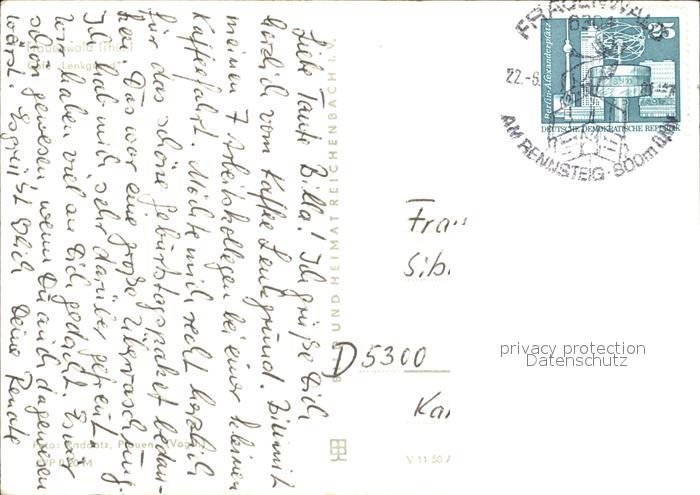 Frauenwald (Thür)
Café "Lenkgrund"
Liebe Tante Billa! Ich grüße Dich
herzlich vom Kaffee Lenkgrund. Bin mit
meinen 7 Arbeitskollegen bei einer kleinen
Kaffeefahrt. Möchte mich recht herzlich
für das schöne Geburtstagspaket bedan-
ken. Das war eine große Überraschung.
Ich hab mich sehr darüber gefreut.
Wir haben viel an Dich gedacht. Es wär
schön gewesen wenn Du auch dagewesen
wärst. Es grüßt Dich Deine Renate
BILD UND HEIMAT REICHENBACH i. V.
Foto: Radantz, Plauen (Vogtl)
V 11 50 A
FRAUENWALD
6304
22.-6.
AM RENNSTEIG · 800m ü.NN
25
Berlin-Alexanderplatz
DEUTSCHE DEMOKRATISCHE REPUBLIK
Frau
Sib
D 5300
Ka
privacy protection
Datenschutz